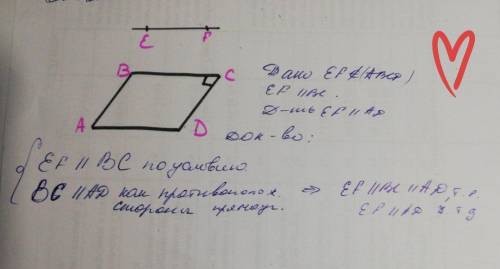 E F
B C
A D
Дано EF ⊄ (ABCD)
EF || BC.
Д-ть EF || AD
Док-во:
EF || BC по условию
BC || AD как противополож. ⇒ EF || BC || AD, т.е.
стороны прямоуг. EF || AD ч.т.д